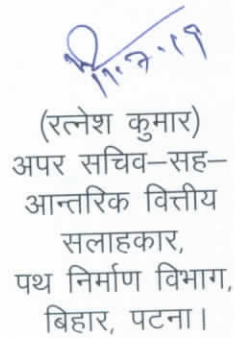 ११.७.१९
(रत्नेश कुमार)
अपर सचिव–सह–
आन्तरिक वित्तीय
सलाहकार,
पथ निर्माण विभाग,
बिहार, पटना।